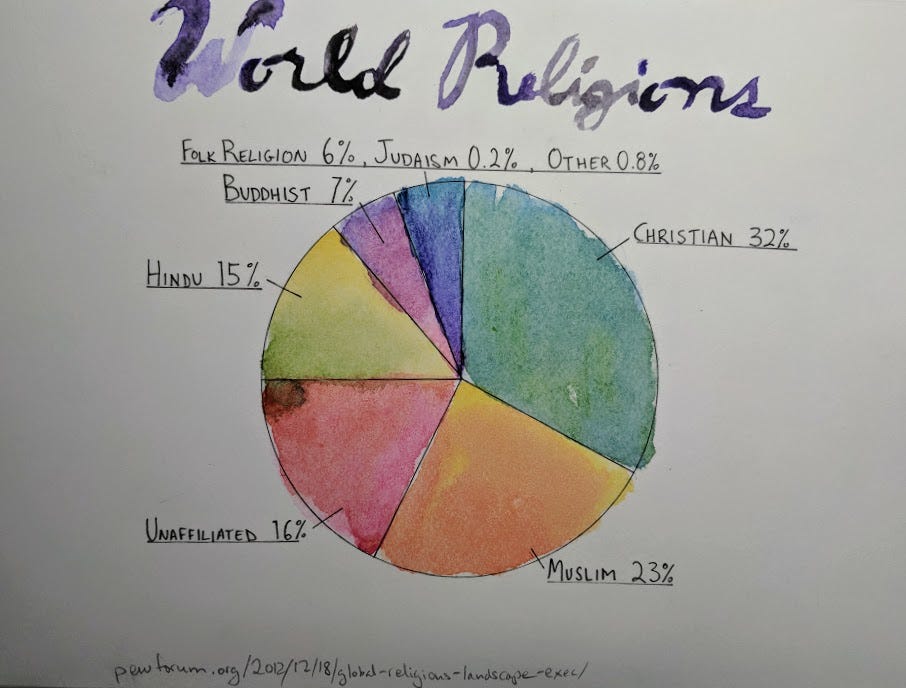 World Religions
FOLK RELIGION 6%, JUDAISM 0.2%, OTHER 0.8%
BUDDHIST 7%
CHRISTIAN 32%
HINDU 15%
UNAFFILIATED 16%
MUSLIM 23%
pewforum.org/2012/12/18/global-religions-landscape-exec/